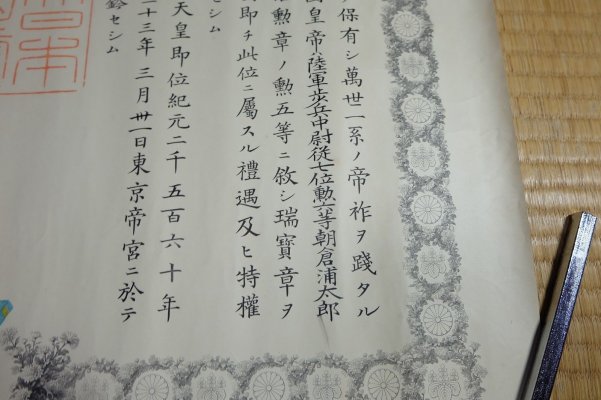 保有シ萬世一系ノ帝祚ヲ踐タル
國皇帝ハ陸軍步兵中尉從七位勲六等朝倉浦太郎
勲章ノ勲五等ニ敘シ瑞寶章ヲ
即チ此位ニ屬スル禮遇及ヒ特權
セシム
天皇即位紀元二千五百六十年
十三年三月卅一日東京帝宮ニ於テ
鈴セシム